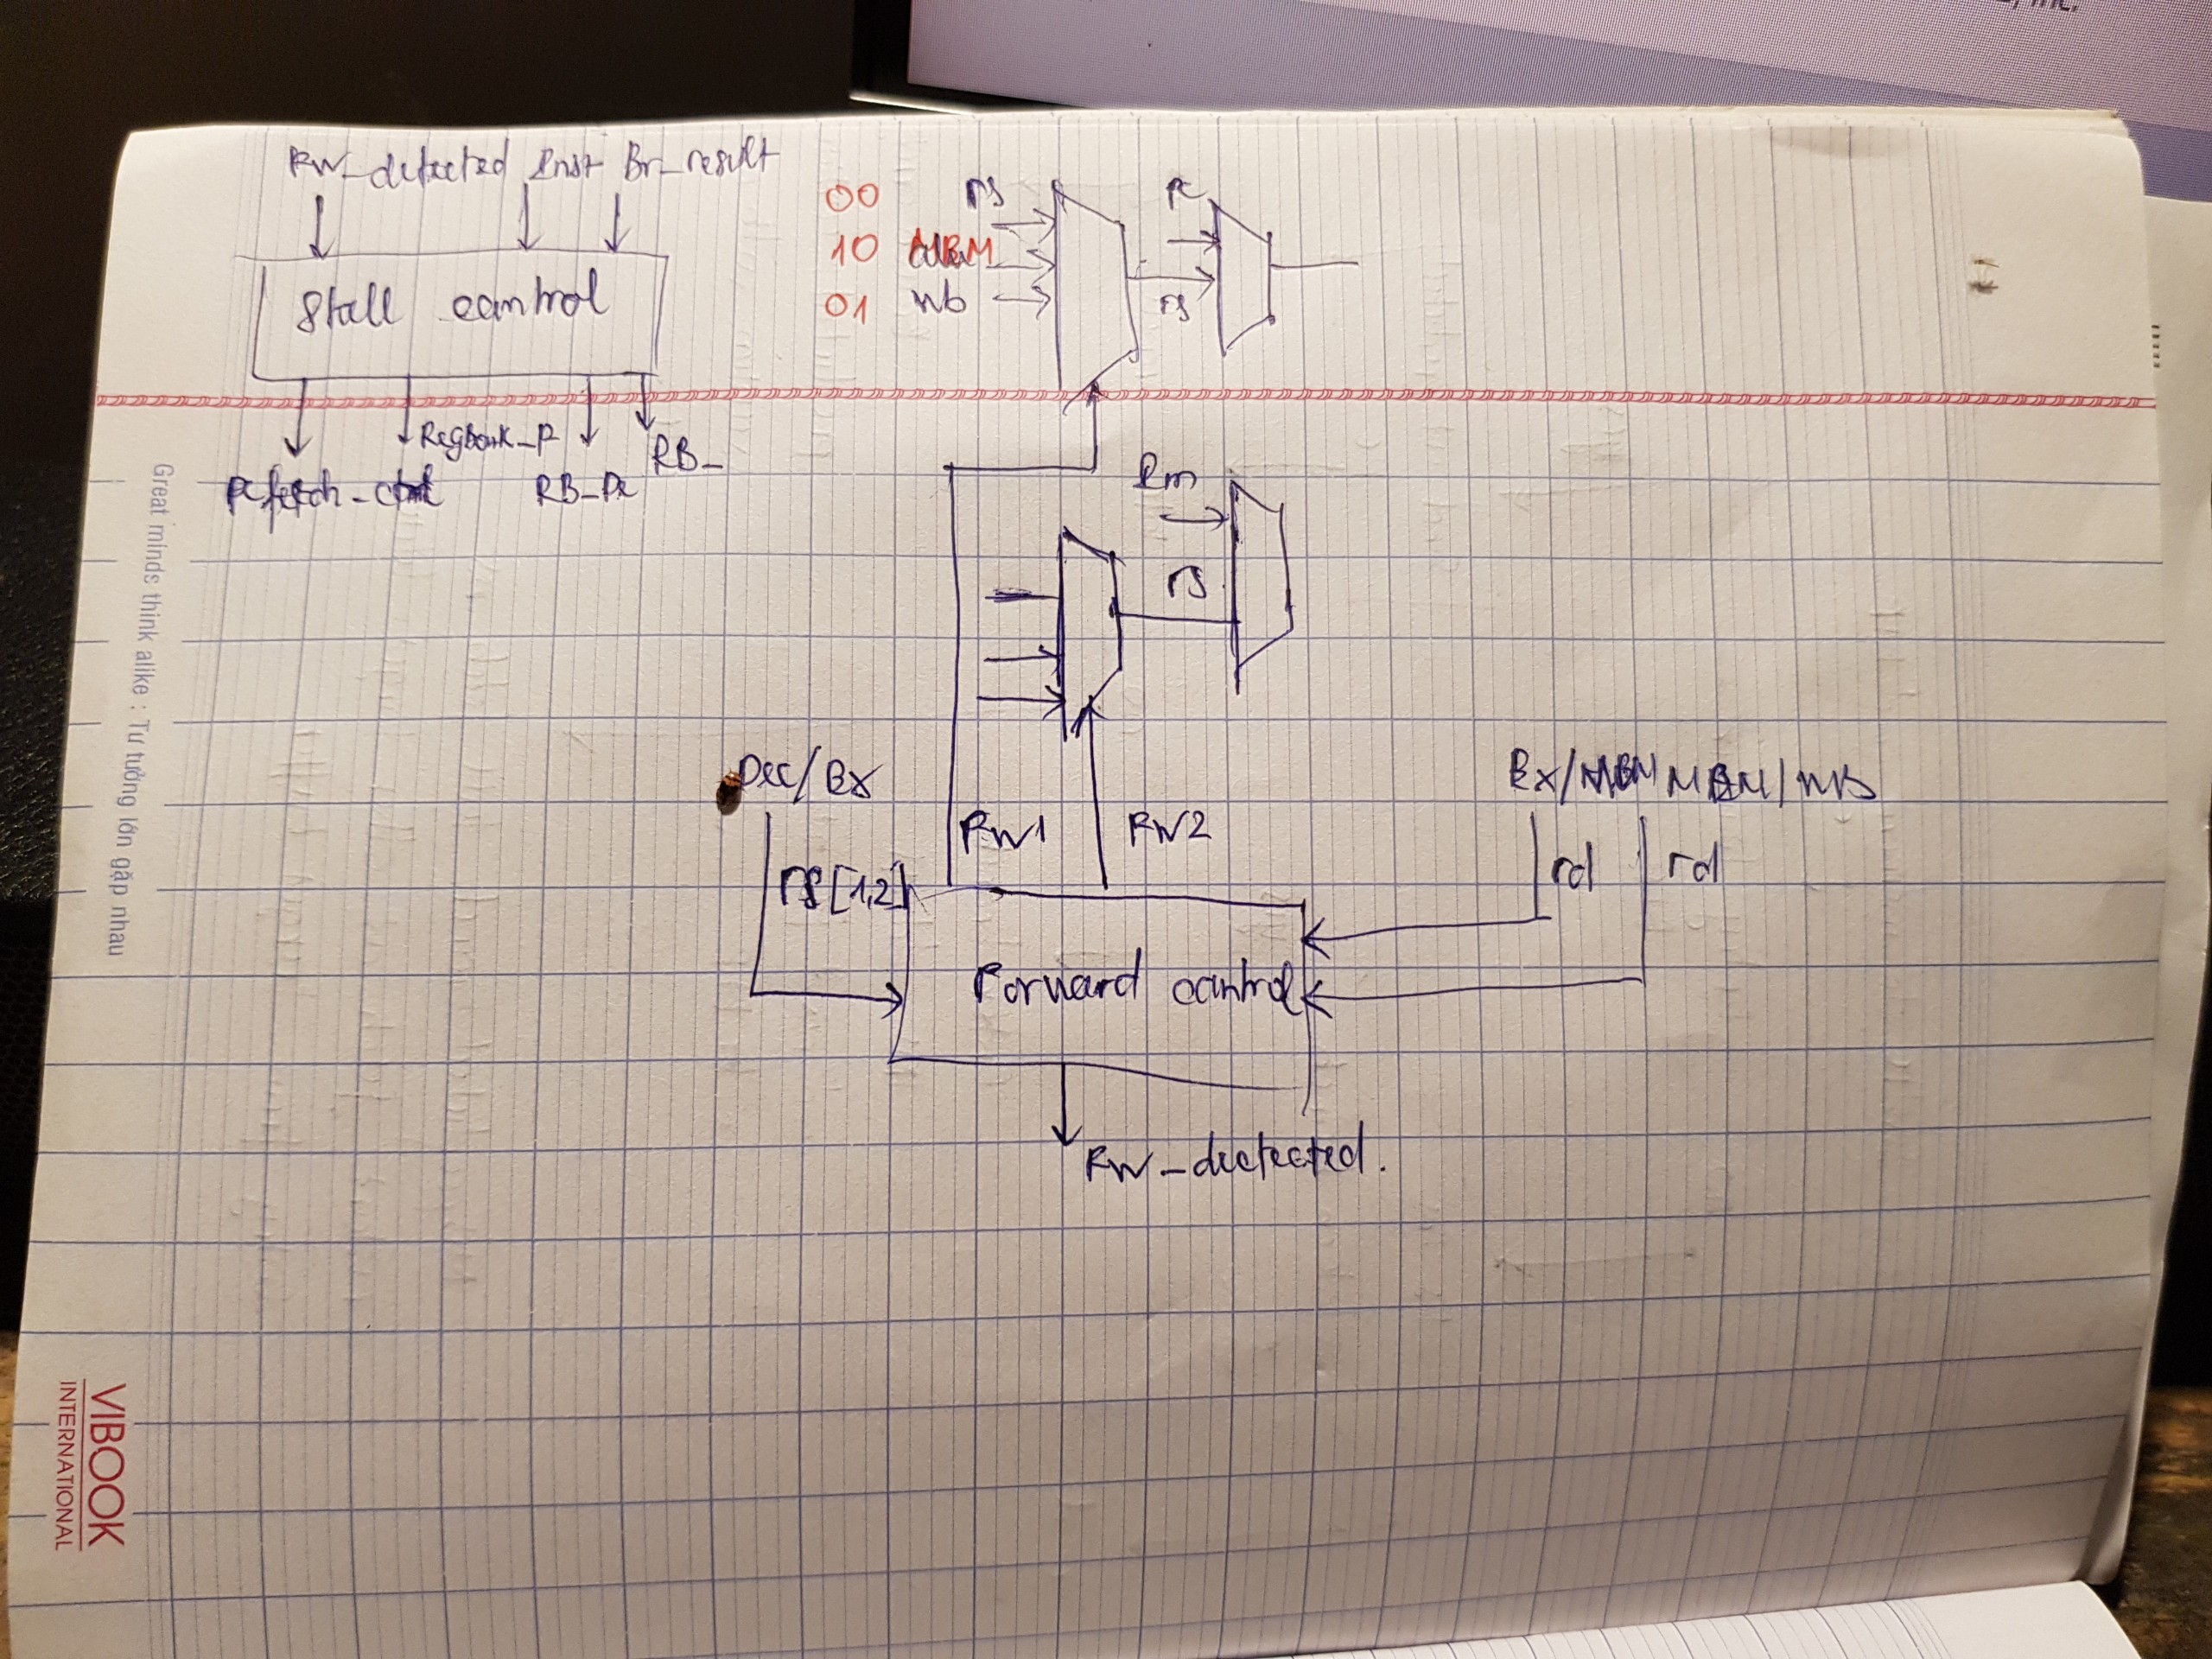 FW_detected Inst Br_result
Stall control
RegBank_P
RB_
PCfetch_ctrl
RB_Pc
00 rs
10 MEM
01 wb
Pc
rs
Im
rs
Dec/Ex
rs[1,2]
FW1 FW2
Ex/MEM MEM/WB
rd rd
Forward control
FW_dectected.
Great minds think alike : Tư tưởng lớn gặp nhau
VIBOOK
INTERNATIONAL